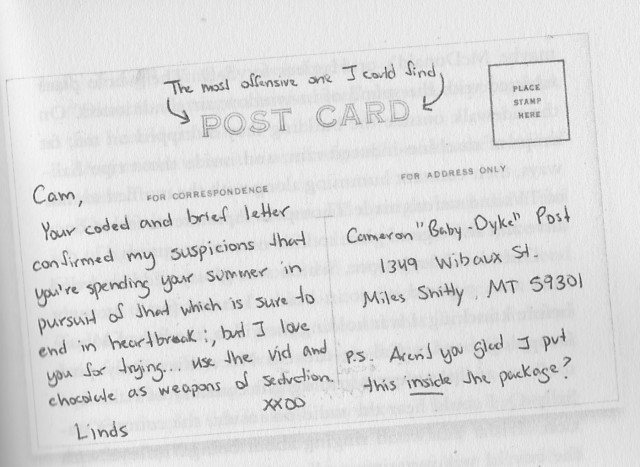 The most offensive one I could find
POST CARD
PLACE
STAMP
HERE
FOR CORRESPONDENCE
FOR ADDRESS ONLY
Cam,
Your coded and brief letter
confirmed my suspicions that
you're spending your summer in
pursuit of that which is sure to
end in heartbreak:, but I love
you for trying... use the vid and
chocolate as weapons of seduction.
XXOO
Linds
Cameron "Baby-Dyke" Post
1349 Wibaux St.
Miles Shitty MT 59301
P.S. Aren't you glad I put
this inside the package?